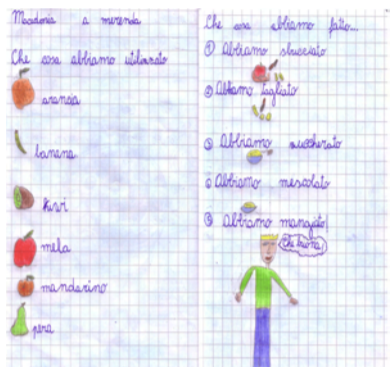 Macedonia a merenda
Che cosa abbiamo utilizzato
arancia
banana
kiwi
mela
mandarino
pera
Che cosa abbiamo fatto...
① Abbiamo sbucciato
② Abbiamo tagliato
③ Abbiamo zuccherato
④ Abbiamo mescolato
⑤ Abbiamo mangiato
Che buona!